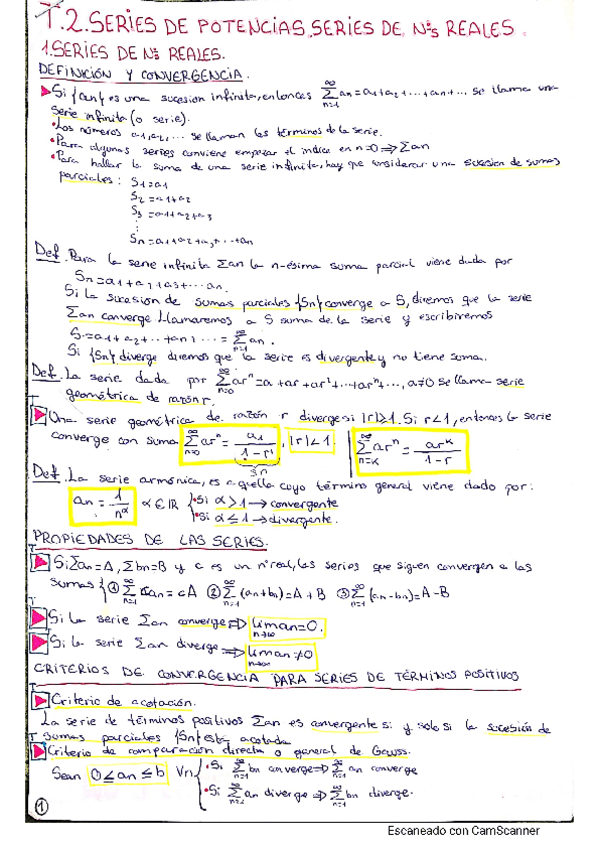 T.2. SERIES DE POTENCIAS, SERIES DE Nºs REALES.
1. SERIES DE Nºs REALES.
DEFINICIÓN Y CONVERGENCIA.
▶ Si {an} es una sucesion infinita, entonces ∞∑n=1 an = a1+a2+...+an+... se llama una
serie infinita (o serie).
• Los números a1, a2, ... se llaman los términos de la serie.
• Para algunas series conviene empezar el indice en n=0 ⇒ ∑an
• Para hallar la suma de una serie infinita, hay que considerar una sucesion de sumas
parciales: S1=a1
S2=a1+a2
S3=a1+a2+a3
⋮
Sn=a1+a2+a3+...+an
Def. Para la serie infinita ∑an la n-ésima suma parcial viene dada por
Sn=a1+a2+a3+...an.
Si la sucesión de sumas parciales {Sn} converge a S, diremos que la serie
∑an converge. Llamaremos a S suma de la serie y escribiremos
S=a1+a2+...+an+...= ∞∑n=1 an.
Si {Sn} diverge diremos que la serie es divergente y no tiene suma.
Def. La serie dada por ∞∑n=0 ar^n=a+ar+ar²+...+ar^n+..., a≠0 se llama serie
geométrica de razón r.
▶ Una serie geométrica de razón r diverge si |r|≥1. Si r<1, entonces la serie
converge con suma ∞∑n=0 ar^n = a1/(1-r), |r|<1. | ∞∑n=k ar^n = ar^k/(1-r)
Sn
Def. La serie armónica, es aquella cuyo término general viene dado por:
an = 1/n^α α∈ℝ { • Si α>1 → convergente
• Si α≤1 → divergente.
PROPIEDADES DE LAS SERIES.
▶ Si ∑an=A, ∑bn=B y c es un nº real, las series que siguen convergen a las
sumas { ① ∞∑n=1 can=cA ② ∞∑n=1 (an+bn)=A+B ③ ∞∑n=1 (an-bn)=A-B
▶ Si la serie ∑an converge ⇒ lim n→∞ an=0.
▶ Si la serie ∑an diverge ⇒ lim n→∞ an≠0
CRITERIOS DE CONVERGENCIA PARA SERIES DE TÉRMINOS POSITIVOS
▶ Criterio de acotación.
La serie de términos positivos ∑an es convergente si y solo si la sucesión de
sumas parciales {Sn} está acotada
▶ Criterio de comparación directa o general de Gauss.
Sean 0≤an≤b ∀n { • Si ∞∑n=1 bn converge ⇒ ∞∑n=1 an converge
• Si ∞∑n=1 an diverge ⇒ ∞∑n=1 bn diverge.
①
Escaneado con CamScanner